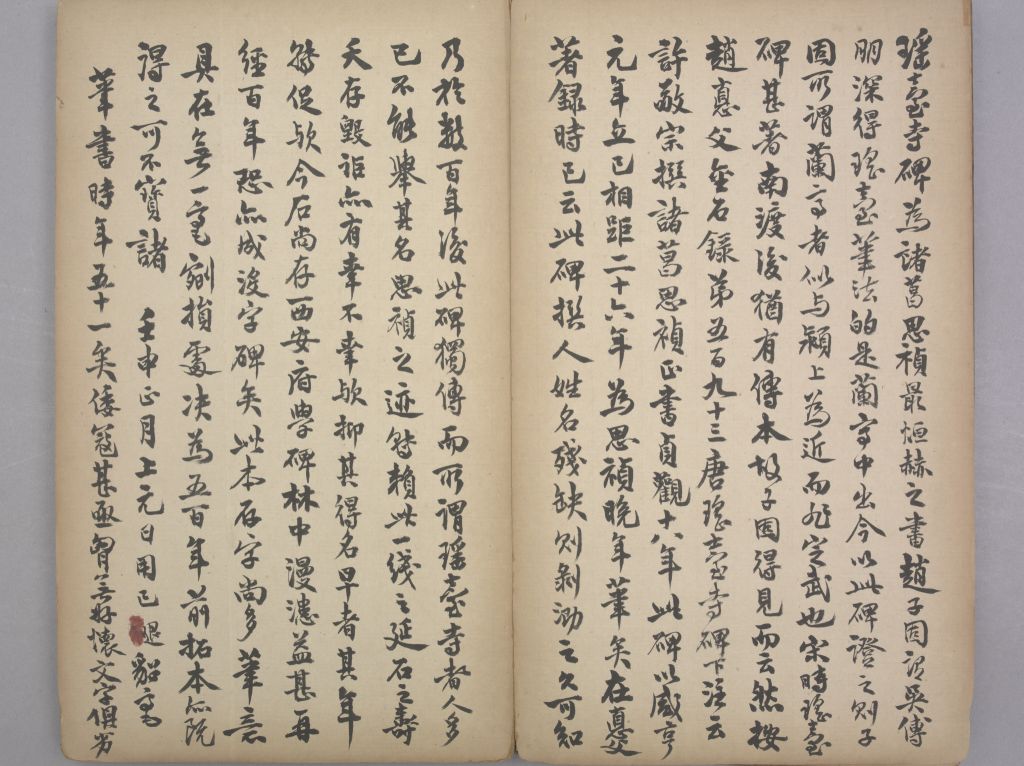 瑶臺寺碑為諸葛思禎最烜赫之書趙子固謂吳傅
朋深得瑤臺筆法的是蘭亭中出今以此碑證之則子
固所謂蘭亭者似与潁上為近而非定武也宋時瑤臺
碑甚著南渡後猶有傳本故子固得見而云然按
趙悳父金石錄第五百九十三唐瑤臺寺碑下注云
許敬宗撰諸葛思禎正書貞觀十八年此碑以咸亨
元年立已相距二十六年為思禎晚年筆矣在悳父
著録時已云此碑撰人姓名殘缺則剝泐之久可知
乃於數百年後此碑獨傳而所謂瑶臺寺者人多
已不能舉其名思禎之迹特賴此一綫之延石之壽
夭存毀詎亦有幸不幸歟抑其得名早者其年
特促歟今石尚存西安府學碑林中漫漶益甚再
經百年恐亦成沒字碑矣此本存字尚多筆意
具在無一毫剜損處決為五百年前拓本亦既
得之可不寶諸 壬申正月上元日用已退貂毫
筆書時年五十一矣倭寇甚亟胷無好懷文字俱劣